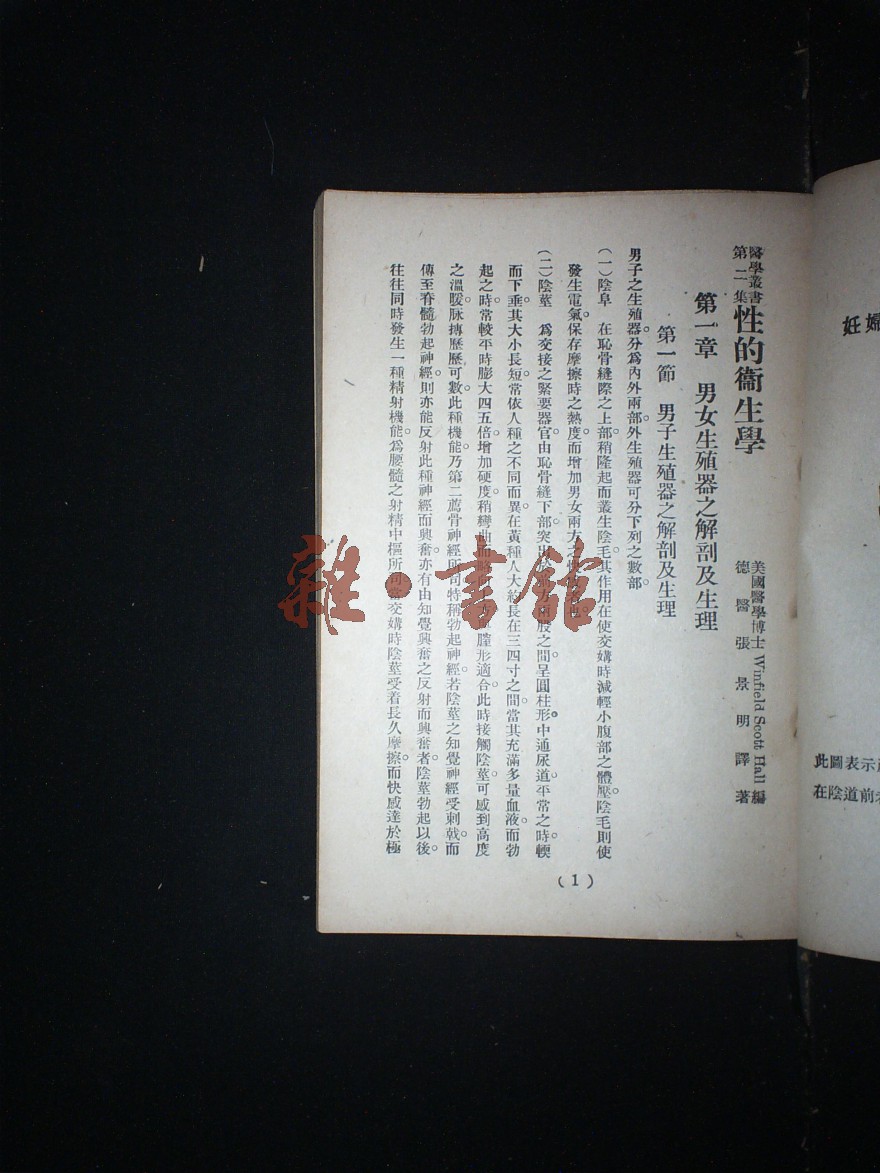 醫學叢書
第二集
性的衞生學
美國醫學博士 Winfield Scott Hall 編
德醫張景明譯著
第一章　男女生殖器之解剖及生理
第一節　男子生殖器之解剖及生理
男子之生殖器。分爲內外兩部。外生殖器可分下列之數部。
(一)陰阜　在恥骨縫際之上部。稍隆起而叢生陰毛。其作用在使交媾時減輕小腹部之體壓。陰毛則使
發生電氣。保存摩擦時之熱度。而增加男女兩方之快
(二)陰莖　爲交接之緊要器官。由恥骨縫下部。突出
股之間。呈圓柱形。中通尿道。平常之時。輭
而下垂。其大小長短。常依人種之不同而異。在黃種人大約長在三四寸之間。當其充滿多量血液。而勃
起之時。常較平時膨大四五倍。增加硬度。稍彎曲而
腟形適合。此時接觸陰莖。可感到高度
之溫暖。脉搏歷歷可數。此種機能。乃第二薦骨神經所司。特稱勃起神經。若陰莖之知覺神經受刺戟。而
傳至脊髓勃起神經。則亦能反射此種神經而興奮。亦有由知覺興奮之反射而興奮者。陰莖勃起以後。
往往同時發生一種精射機能。爲腰髓之射精中樞所司。當交媾時。陰莖受着長久摩擦。而快感達於極
(1)
雜·書館
妊婦
此圖表示
在陰道前